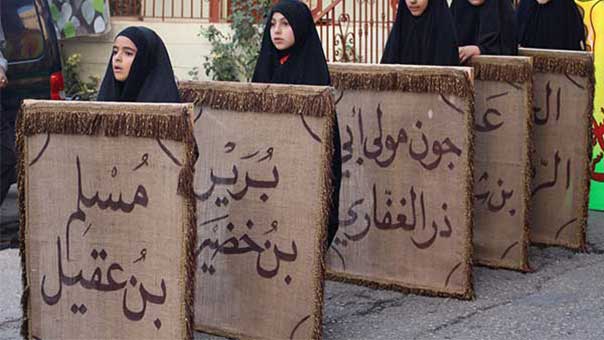 مُسْلِم
بن عقيل
بُرَيْر
بن خضير
جون مولى أبي
ذر الغفاري
بن